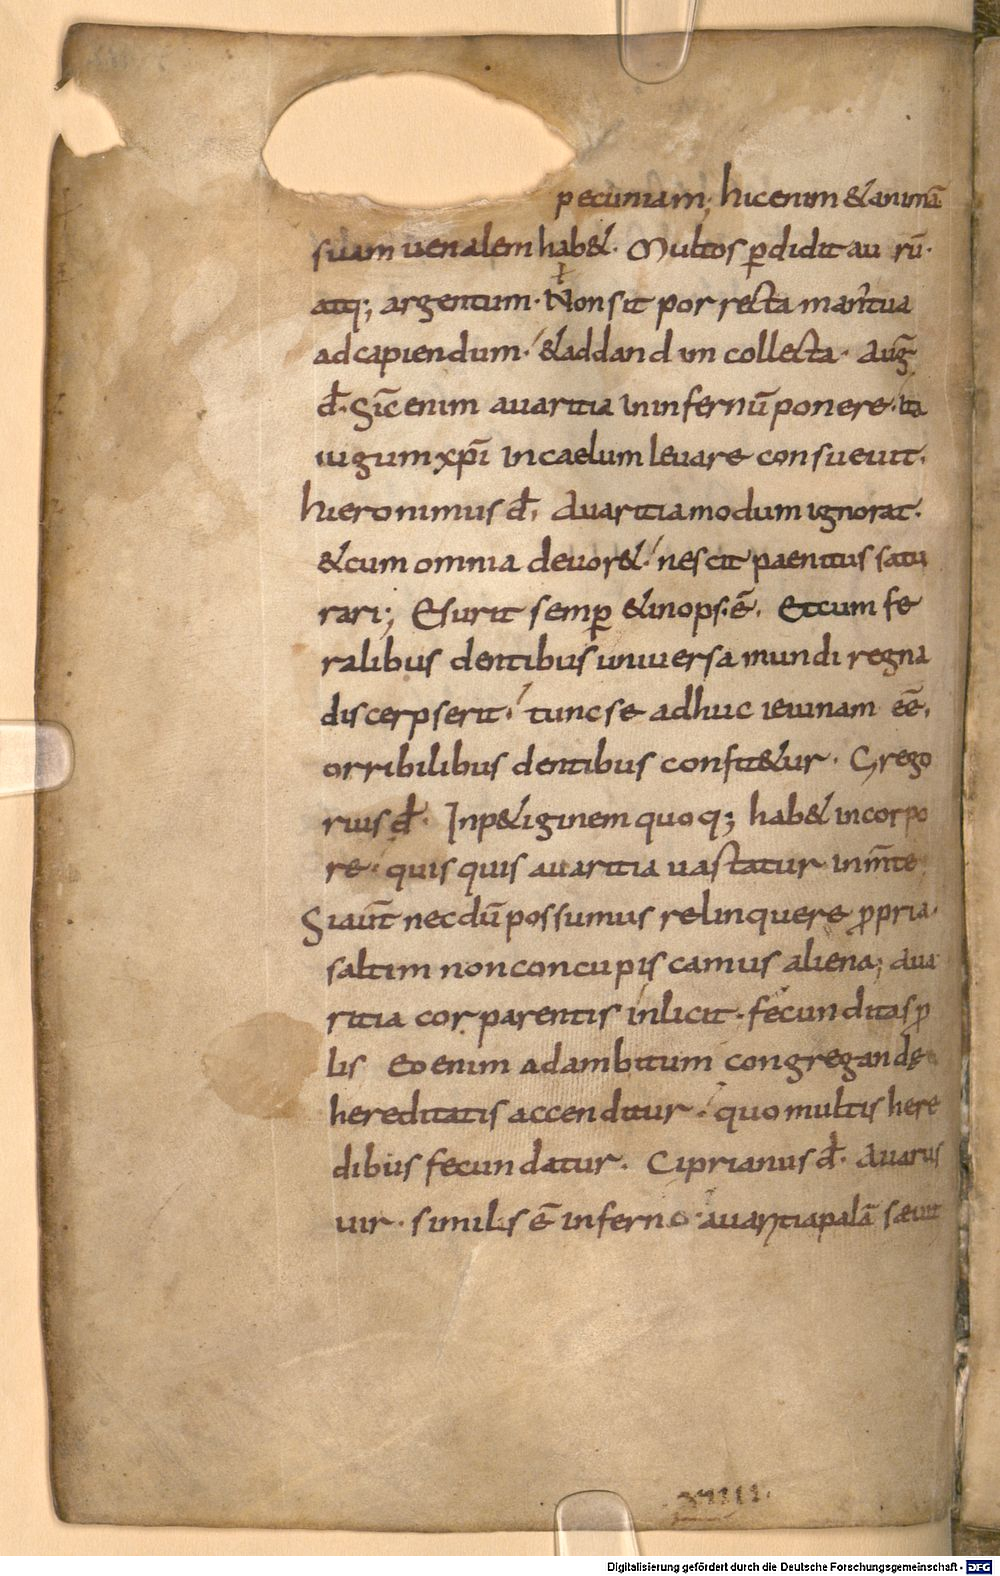 pecuniam; hic enim & animā
suam uenalem hab&. Multos ꝑdidit au rū.
atq; argentum. Non sit porrecta man' tua
ad capiendum. & ad dand im collecta. Auḡ
d̄. Sic̄ enim auaritia in infernū ponere. ita
iugum xp̄i in caelum leuare consueuit.
hieronimus d̄. Auaritia modum ignorat.
& cum omnia deuor&. nescit paenitus satu
rari; Esurit semꝑ & inops. ē. Et cum fe
ralibus dentibus uniuersa mundi regna
discerpserit. tunc se adhuc ieiunam eē.
orribilibus dentibus confit&ur. Grego
rius d̄. Inp&iginem quoq; hab& in corpo
re. quis quis auaritia uastatur in m̄te
Si aūt necdū possumus relinquere ꝓpria.
saltim non concupiscamus aliena; Aua
ritia cor parentis inlicit. fecunditas ꝓ
lis Eo enim ad ambitum congregande
hereditatis accenditur. quo multis here
dibus fecundatur. Ciprianus d̄. Auarus
uir. similis ē inferno. auaritia palā sæuit